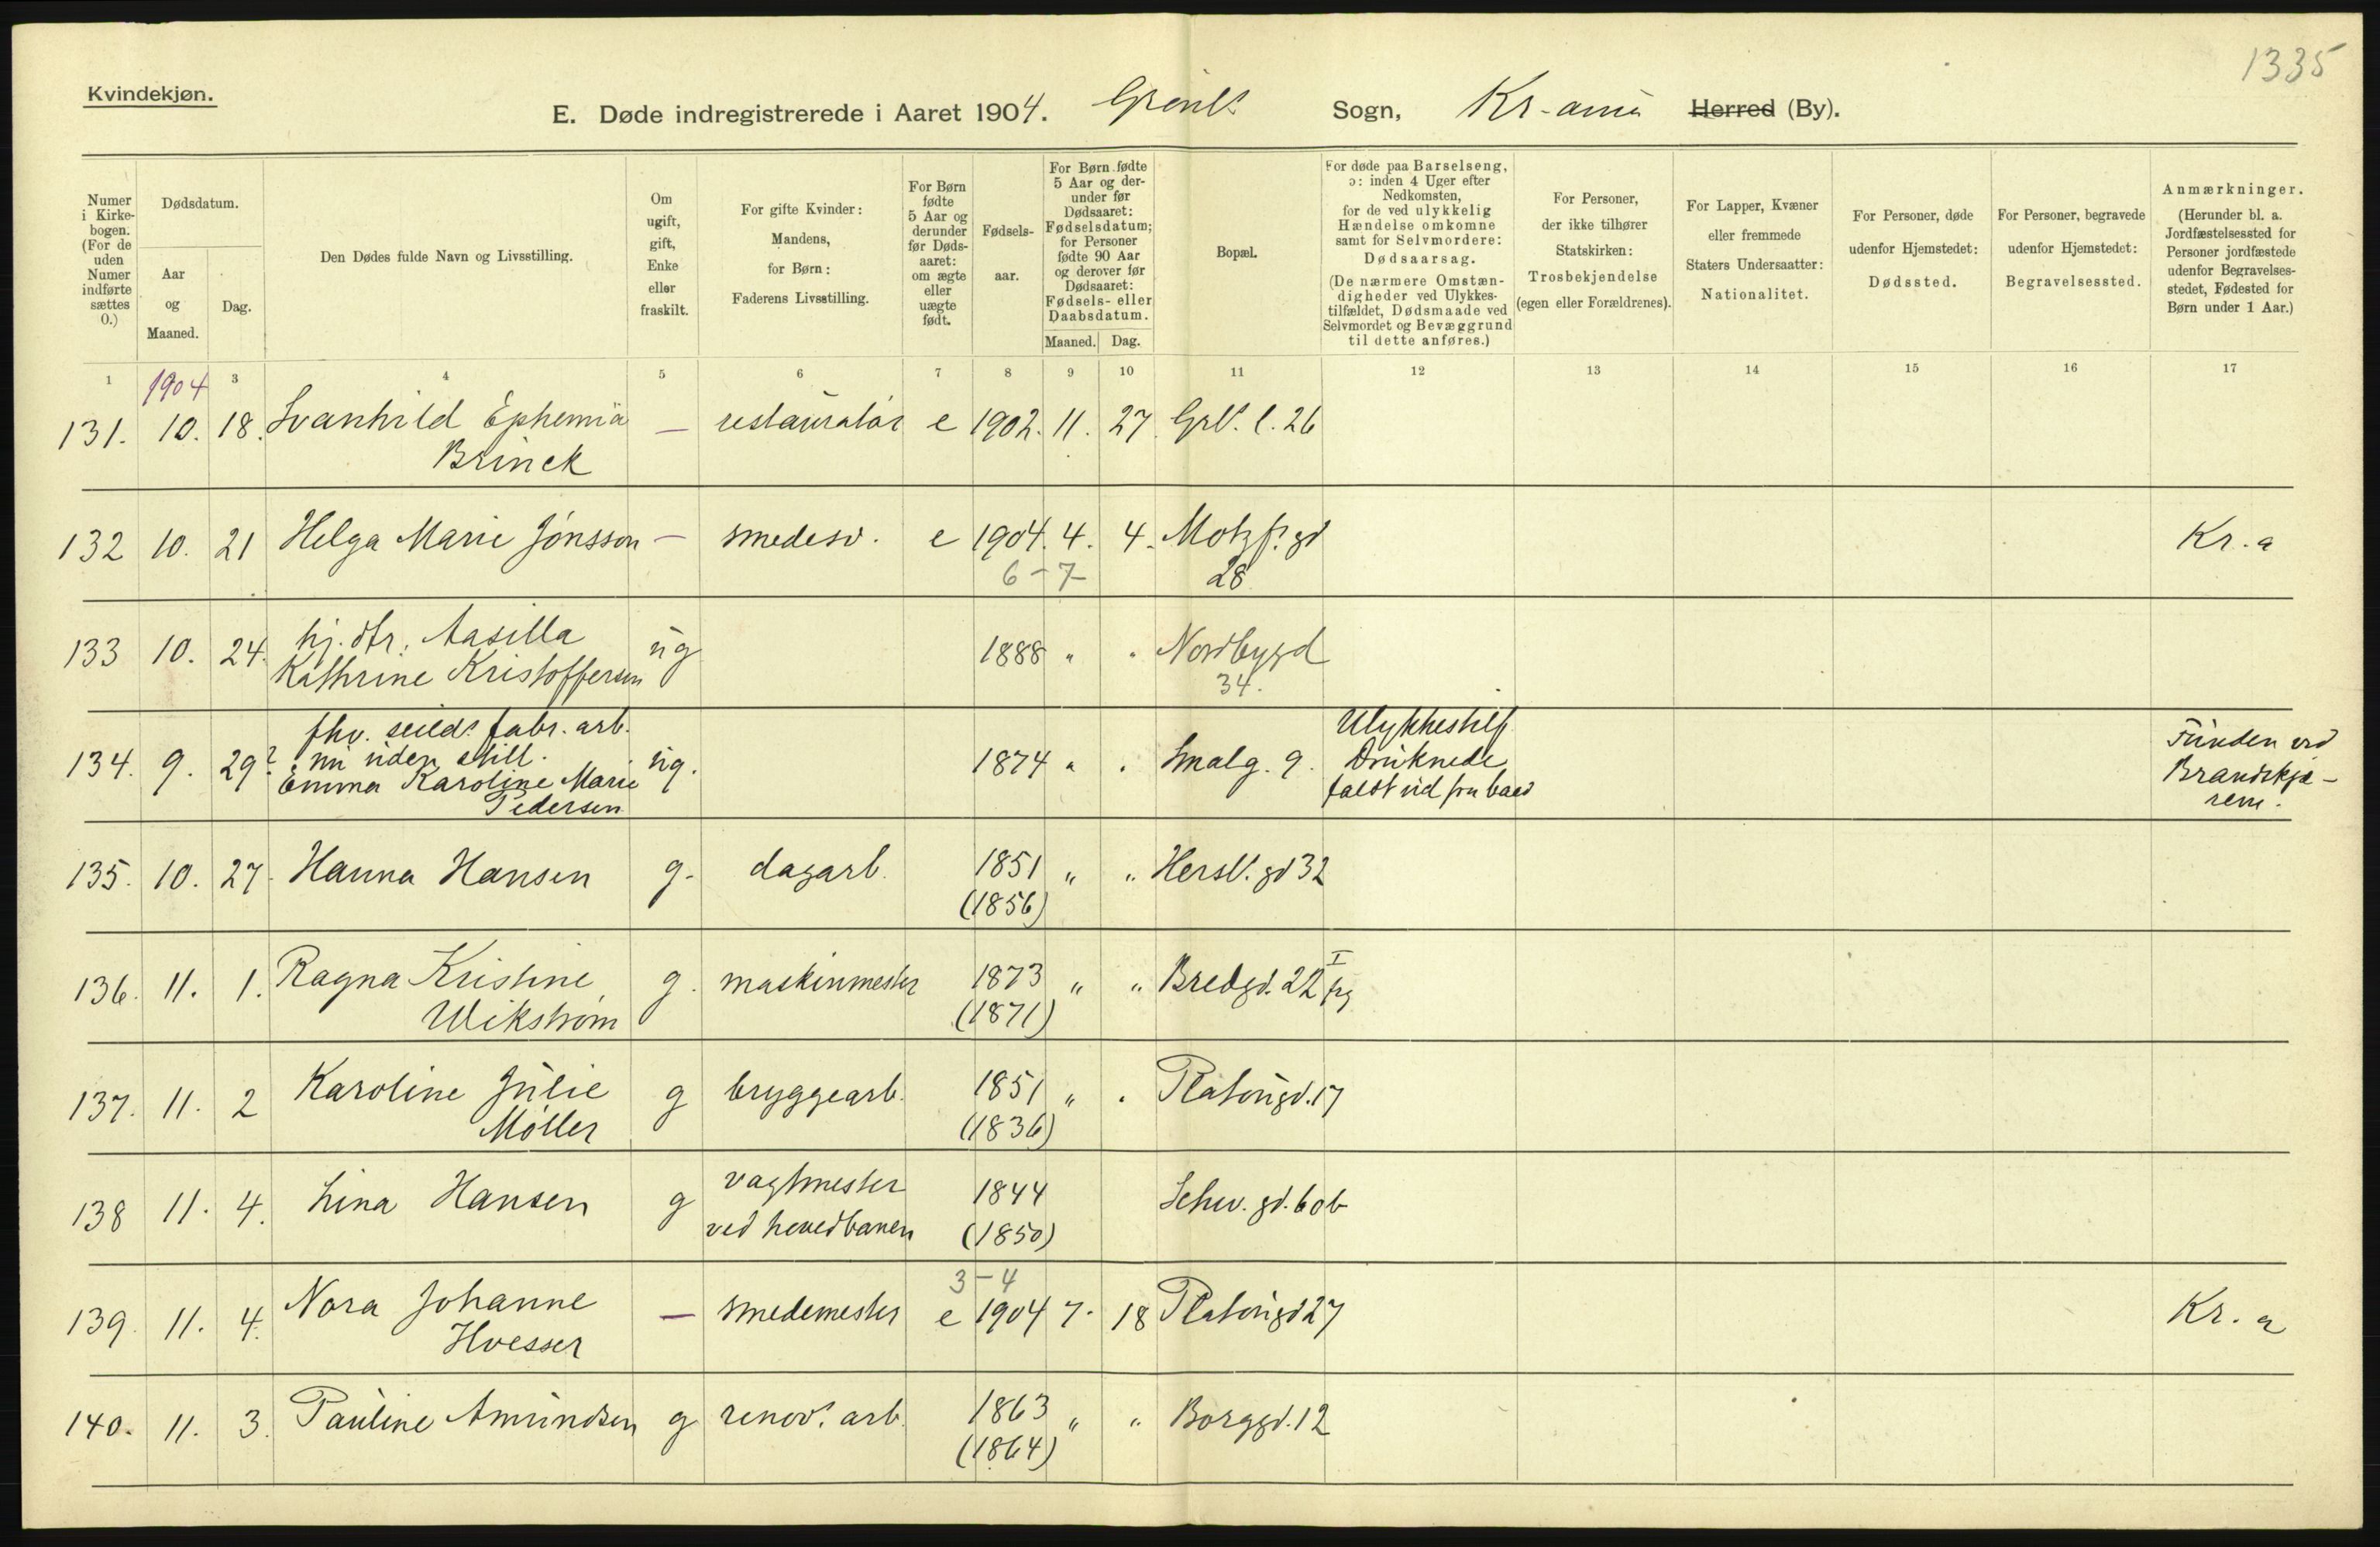 1335
Kvindekjøn.
E. Døde indregistrerede i Aaret 1904. Grønl. Sogn, Kr-ania Herred (By).
Numer i Kirkebogen. (For de uden Numer indførte sættes 0.)
Dødsdatum.
Aar og Maaned.
Dag.
Den Dødes fulde Navn og Livsstilling.
Om ugift, gift, Enke eller fraskilt.
For gifte Kvinder: Mandens, for Børn: Faderens Livsstilling.
For Børn fødte 5 Aar og derunder før Dødsaaret: om ægte eller uægte født.
Fødselsaar.
For Børn fødte 5 Aar og derunder før Dødsaaret: Fødselsdatum; for Personer fødte 90 Aar og derover før Dødsaaret: Fødsels- eller Daabsdatum.
Maaned. Dag.
Bopæl.
For døde paa Barselseng, ɔ: inden 4 Uger efter Nedkomsten, for de ved ulykkelig Hændelse omkomne samt for Selvmordere: Dødsaarsag.
(De nærmere Omstændigheder ved Ulykkestilfældet, Dødsmaade ved Selvmordet og Bevæggrund til dette anføres.)
For Personer, der ikke tilhører Statskirken: Trosbekjendelse (egen eller Forældrenes).
For Lapper, Kvæner eller fremmede Staters Undersaatter: Nationalitet.
For Personer, døde udenfor Hjemstedet: Dødssted.
For Personer, begravede udenfor Hjemstedet: Begravelsessted.
Anmærkninger.
(Herunder bl. a. Jordfæstelsessted for Personer jordfæstede udenfor Begravelsesstedet, Fødested for Børn under 1 Aar.)
1 3 4 5 6 7 8 9 10 11 12 13 14 15 16 17
1904
131. 10. 18. Svanhild Ephemia — restauratør e 1902. 11. 27. Grl. l. 26
Brinck
132 10. 21 Helga Marie Jónsson — smedesv. e 1904. 4. 4. Motzf. gd Kr. a
6-7- 28
133 10. 24. hj. dtr. Aasilla ug 1888 " " Nordbygd
Kathrine Kristoffersen 34.
fhv. seilds fabr. arb. Ulykkestilf.
134. 9. 29? nu uden still. ug. 1874 " " Smalg. 9. Druknede Funden ved
Emma Karoline Marie faldt ud fra baad Brandskjæ-
Pedersen rene.
135. 10. 27. Hanna Hansen g. dagarb. 1851 " " Hersl. gd 32
(1856)
136. 11. 1. Ragna Kristine g. maskinmester 1873 " " Bredgd. 22 I
Wikstrøm (1871)
137. 11. 2 Karoline Julie g bryggearb. 1851 " " Platougd. 17
Møller (1836)
138 11. 4. Lina Hansen g vagtmester 1844 Schw. gd. 60b
ved hovedbanen (1850)
3-4
139. 11. 4. Nora Johanne — smedemester e 1904 7. 18 Platougd 27 Kr. a
Hvesser
140. 11. 3. Pauline Amundsen g renov. arb. 1863 " " Borggd. 12
(1864)